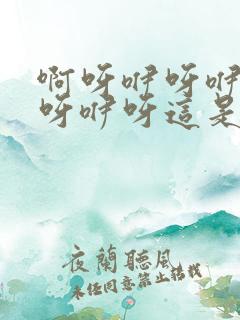 啊呀咿呀咿
呀咿呀這是
夜蘭聽風
未經同意禁止轉載